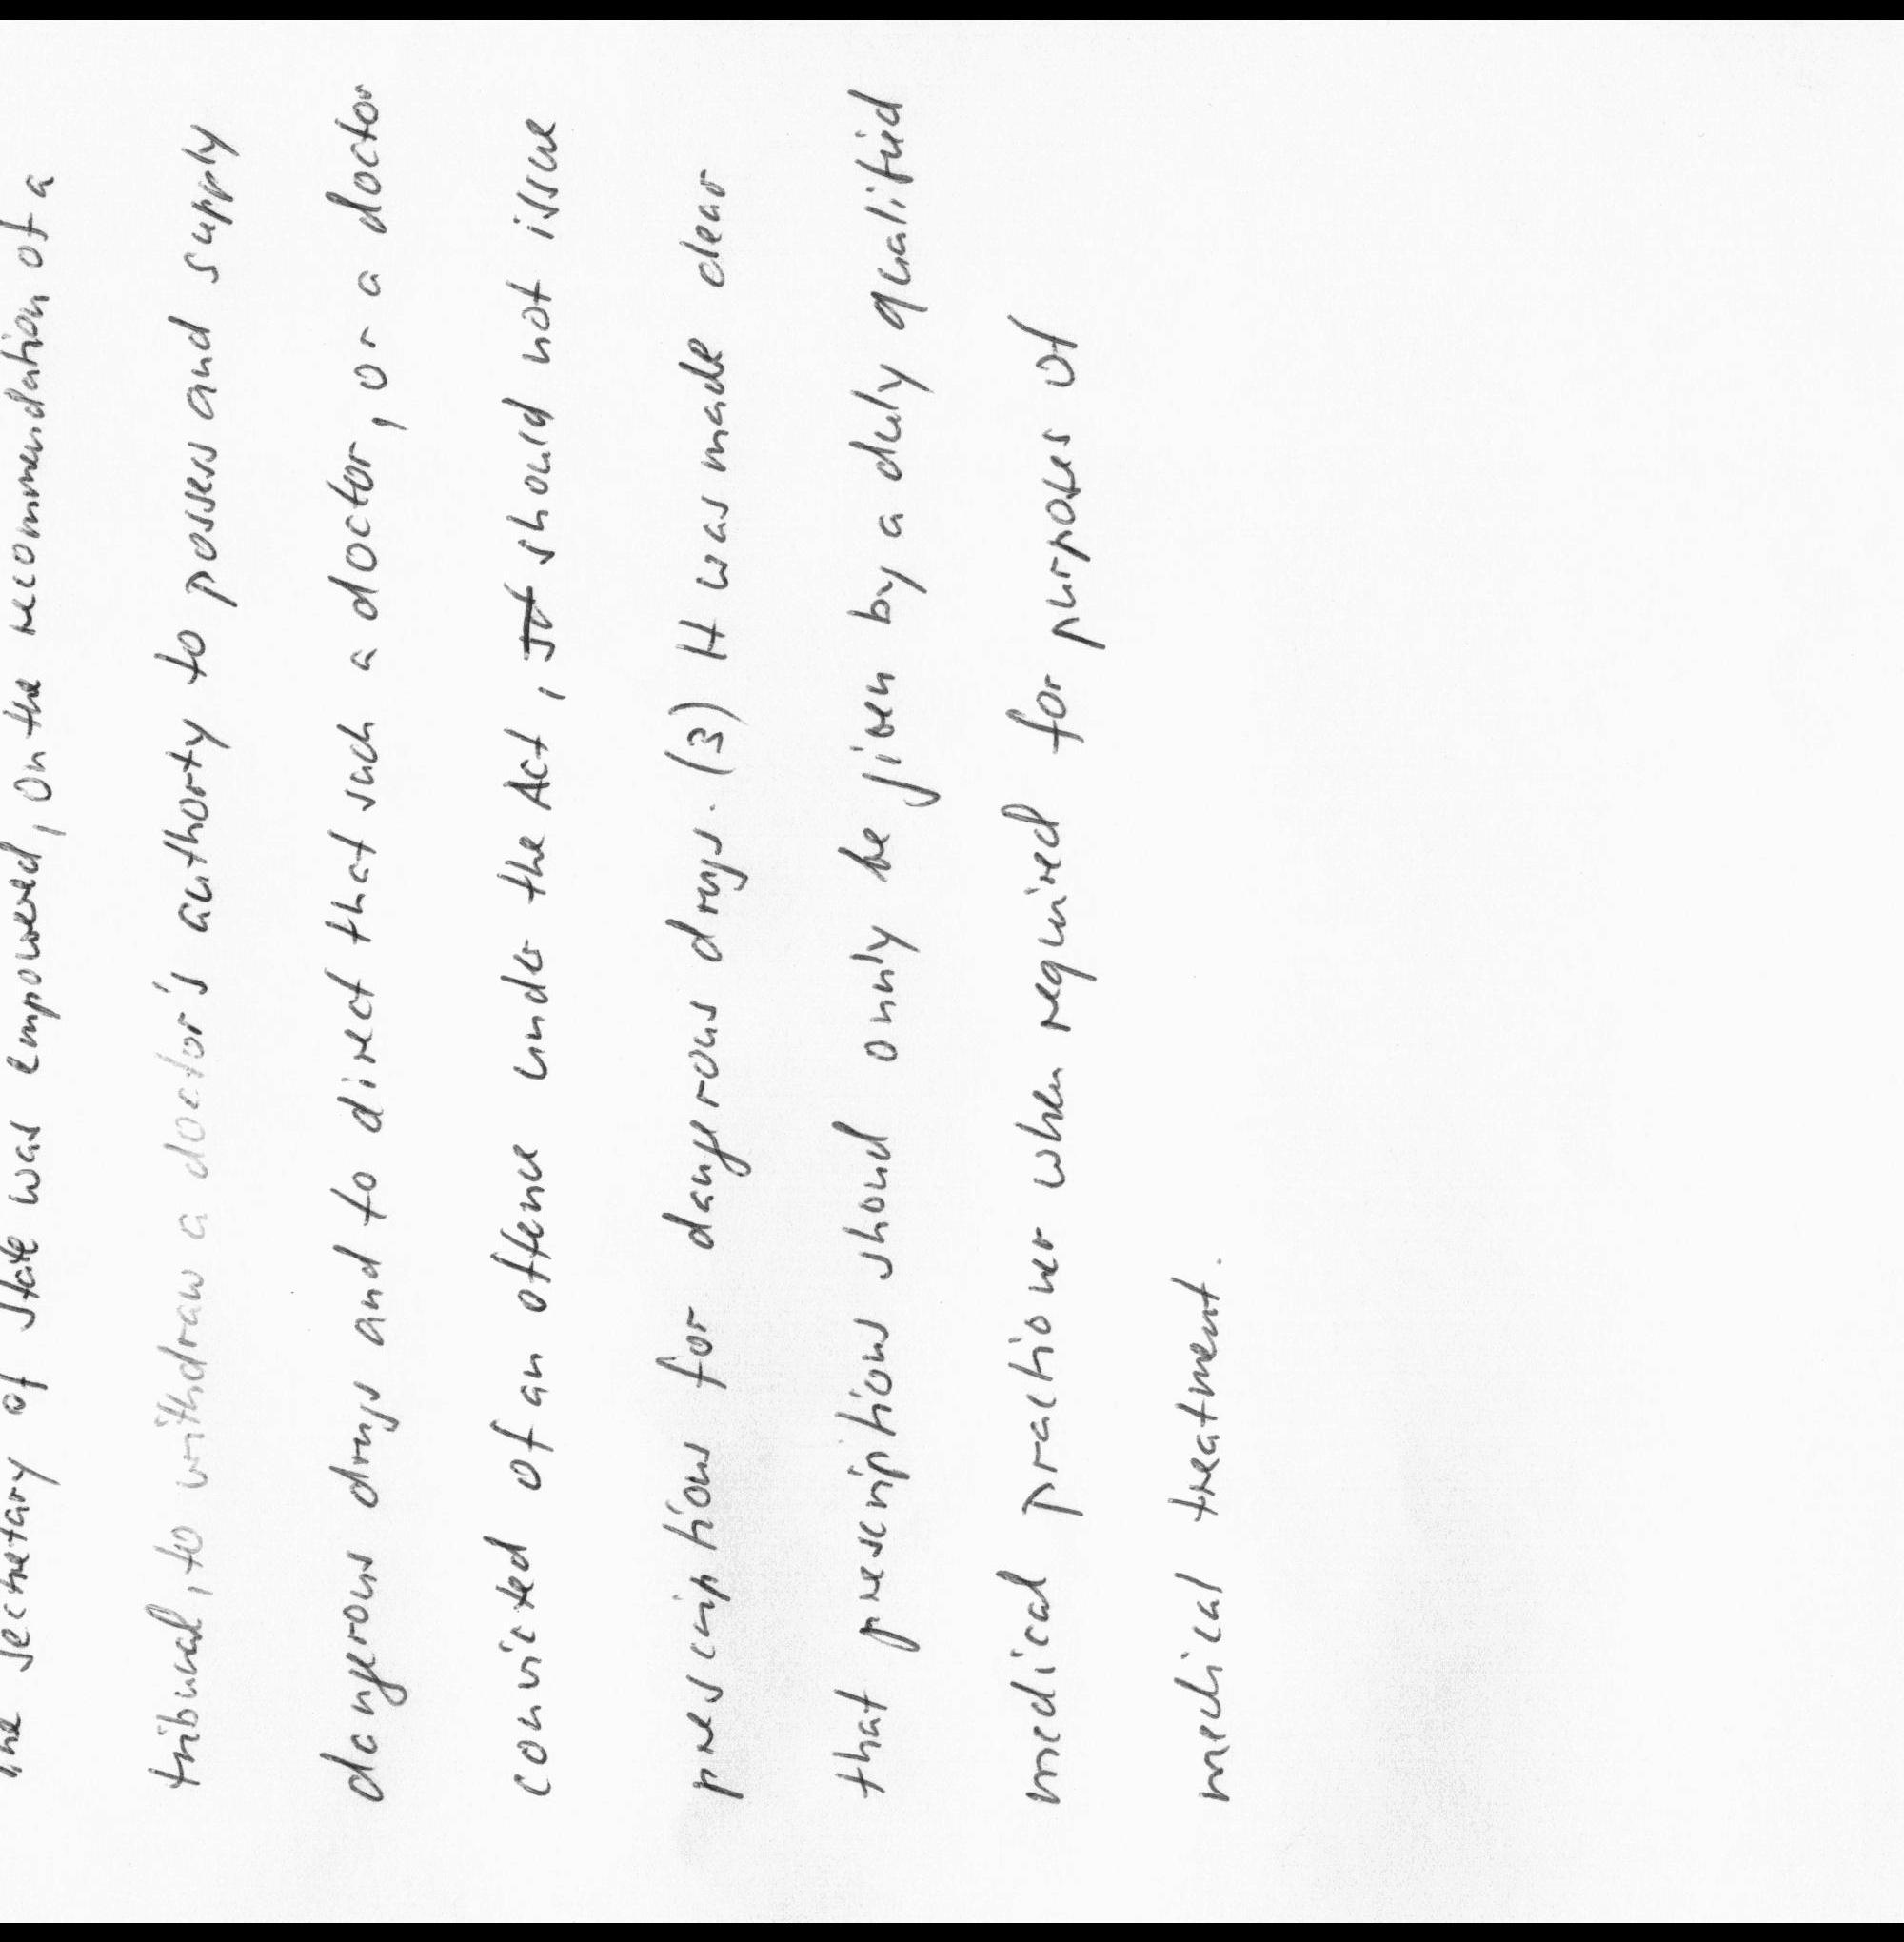 the Secretary of State was empowered, on the recommendation of a
tribunal, to withdraw a doctor's authorty to possess and supply
dangerous drugs and to direct that such a doctor, or a doctor
convicted of an offence under the Act, should not issue
prescriptions for dangerous drugs. (3) It was made clear
that prescriptions should only be given by a duly qualified
medical practioner when required for purposes of
medical treatment.